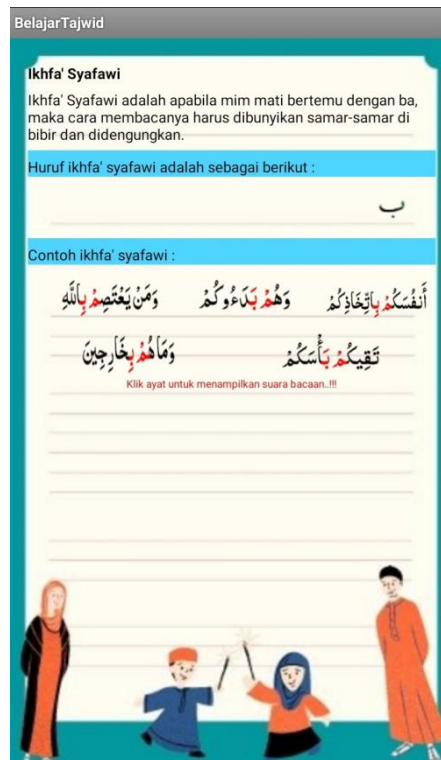 BelajarTajwid
Ikhfa' Syafawi
Ikhfa' Syafawi adalah apabila mim mati bertemu dengan ba,
maka cara membacanya harus dibunyikan samar-samar di
bibir dan didengungkan.
Huruf ikhfa' syafawi adalah sebagai berikut :
ب
Contoh ikhfa' syafawi :
أَنفُسَكُمْ بِاتِّخَاذِكُمُ وَهُمْ بَدَءُوكُمْ وَمَنْ يَعْتَصِمْ بِاللَّهِ
تَقِيكُمْ بَأْسَكُمْ وَمَاهُمْ بِخَارِجِينَ
Klik ayat untuk menampilkan suara bacaan..!!!